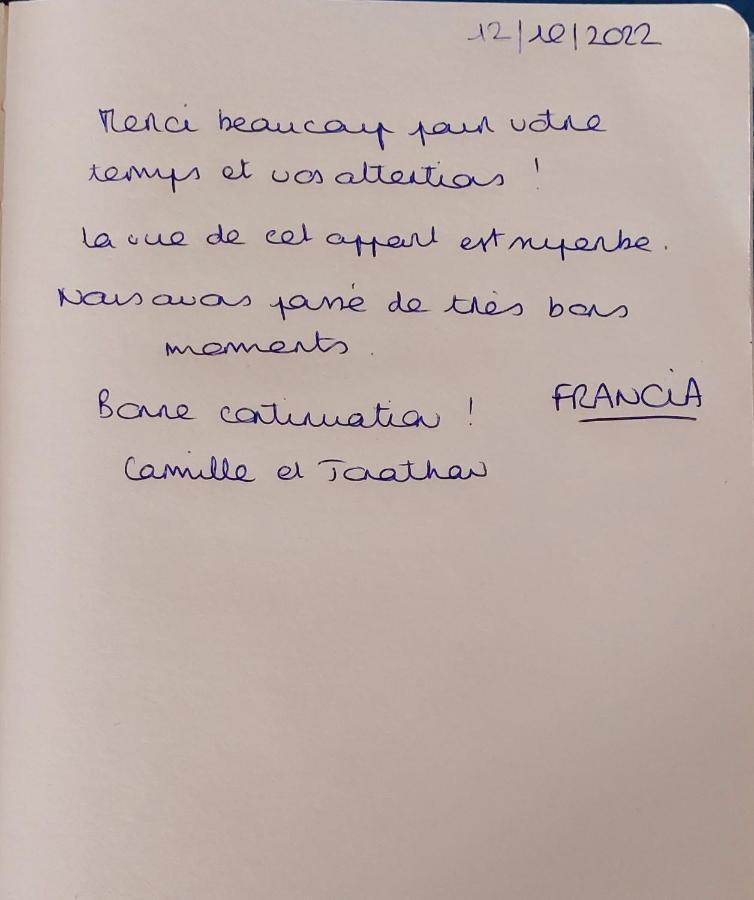 12/10/2022
Merci beaucoup pour votre
temps et vos attentions !
La vue de cet appart est superbe.
Nous avons passé de très bons
moments.
Bonne continuation !
FRANCIA
Camille et Jonathan